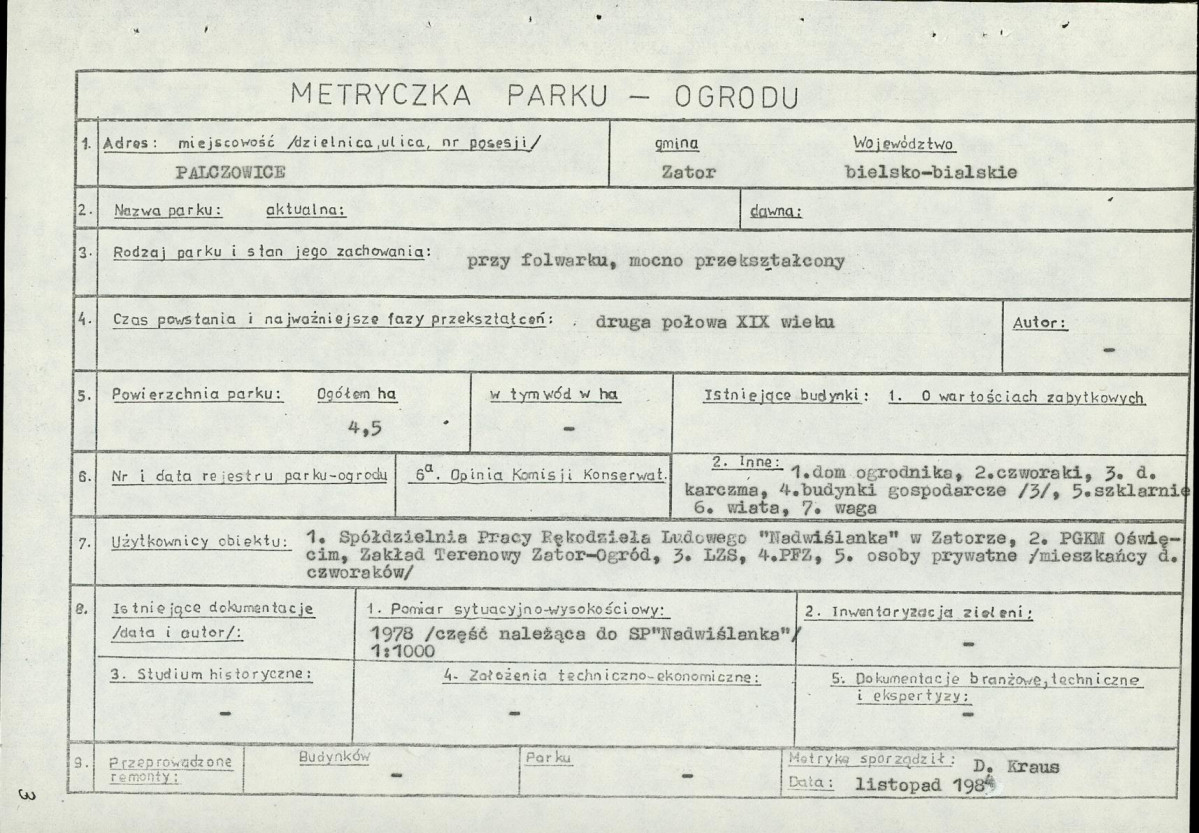 METRYCZKA PARKU – OGRODU
1. Adres: miejscowość /dzielnica, ulica, nr posesji/ gmina Województwo
PALCZOWICE Zator bielsko-bialskie
2. Nazwa parku: aktualna: dawna:
3. Rodzaj parku i stan jego zachowania: przy folwarku, mocno przekształcony
4. Czas powstania i najważniejsze fazy przekształceń: druga połowa XIX wieku Autor:
–
5. Powierzchnia parku: Ogółem ha w tym wód w ha Istniejące budynki: 1. O wartościach zabytkowych
4,5 –
6. Nr i data rejestru parku-ogrodu 6a. Opinia Komisji Konserwat. 2. Inne: 1.dom ogrodnika, 2.czworaki, 3. d.
karczma, 4.budynki gospodarcze /3/, 5.szklarnie
6. wiata, 7. waga
7. Użytkownicy obiektu: 1. Spółdzielnia Pracy Rękodzieła Ludowego "Nadwiślanka" w Zatorze, 2. PGKM Oświę-
cim, Zakład Terenowy Zator-Ogród, 3. LZS, 4.PFZ, 5. osoby prywatne /mieszkańcy d.
czworaków/
8. Istniejące dokumentacje 1. Pomiar sytuacyjno-wysokościowy: 2. Inwentaryzacja zieleni:
/data i autor/: 1978 /część należąca do SP"Nadwiślanka"/ –
1:1000
3. Studium historyczne: 4. Założenia techniczno-ekonomiczne: 5. Dokumentacje branżowe, techniczne
i ekspertyzy:
– – –
9. Przeprowadzone Budynków Parku Metrykę sporządził: D. Kraus
remonty: – – Data: listopad 1984
3